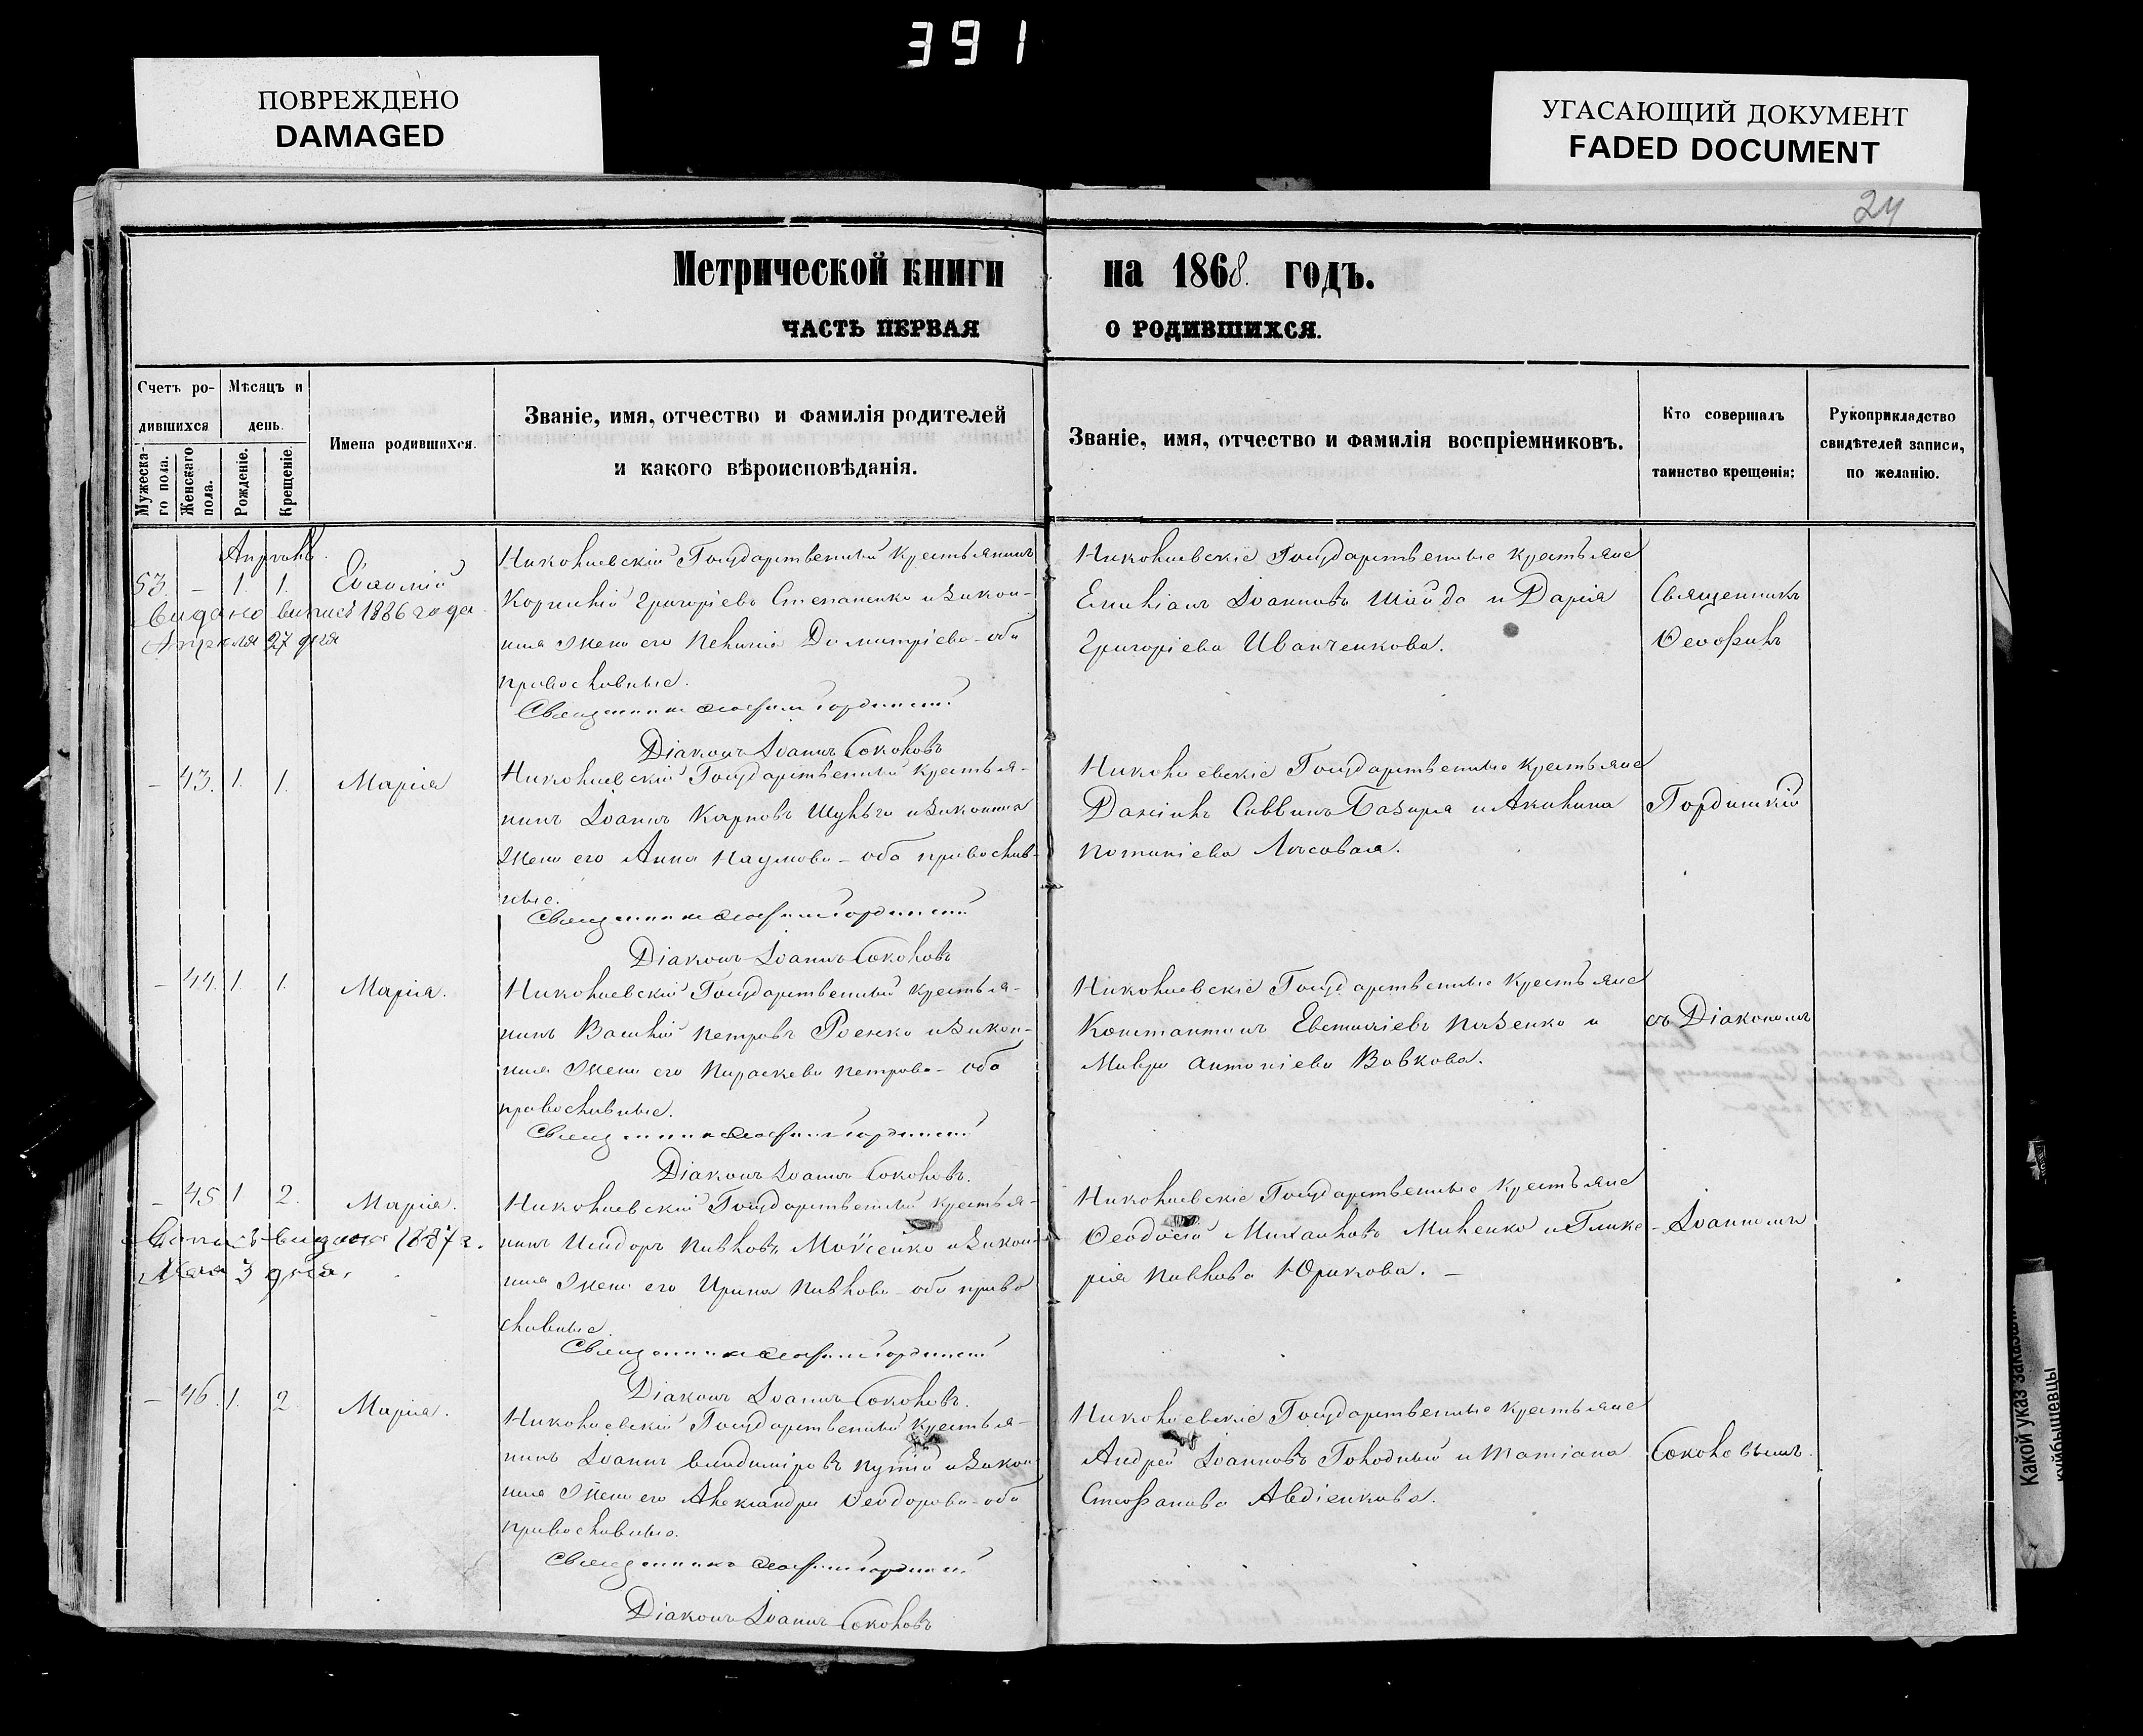 391
ПОВРЕЖДЕНО
DAMAGED
УГАСАЮЩИЙ ДОКУМЕНТ
FADED DOCUMENT
24
Метрической книги на 1868. годъ.
ЧАСТЬ ПЕРВАЯ О РОДИВШИХСЯ.
Счетъ ро-
дившихся
Мужеска-
го пола.
Женскаго
пола.
Мѣсяцъ и
день.
Рожденіе.
Крещеніе.
Имена родившихся.
Званіе, имя, отчество и фамилія родителей
и какого вѣроисповѣданія.
Званіе, имя, отчество и фамилія воспріемниковъ.
Кто совершалъ
таинство крещенія:
Рукоприкладство
свидѣтелей записи,
по желанію.
Апрѣль.
53. – 1. 1.
видано выпись 1886 года
Апреля 27 дня
Николаевскій Государственный крестьянинъ
Корнилій Григоріевъ Степаненко и закон-
ная жена его Меланія Димитріева – оба
православные.
Священникъ Ѳеофилъ Гординскій
Діаконъ Іоаннъ Соколовъ
Николаевскіе Государственные крестьяне
Емиліанъ Іоанновъ Шайда и Дарія
Григоріева Иванченкова.
Священникъ
Ѳеофилъ
– 43. 1. 1. Марія
Николаевскій Государственный крестья-
нинъ Іоаннъ Карповъ Шульга и законная
жена его Анна Наумова – оба православ-
ные.
Священникъ Ѳеофилъ Гординскій
Діаконъ Іоаннъ Соколовъ
Николаевскіе Государственные крестьяне
Даніилъ Саввинъ Базыря и Акилина
Лысовая.
Гординскій
– 44. 1. 1. Марія.
Николаевскій Государственный крестья-
нинъ Василій Петровъ Роенко и закон-
ная жена его Параскева Петрова – оба
православные.
Священникъ Ѳеофилъ Гординскій
Діаконъ Іоаннъ Соколовъ.
Николаевскіе Государственные крестьяне
Константинъ Пазенко и
Мавра Антоніева Вовкова.
съ Діакономъ
– 45. 1 2. Марія.
Выпись видана 1887 г.
Мая 3 дня.
Николаевскій Государственный крестья-
нинъ Исидоръ Павловъ Моисѣенко и закон-
ная жена его Ирина Павлова – оба право
славные.
Священникъ Ѳеофилъ Гординскій
Діаконъ Іоаннъ Соколовъ.
Николаевскіе Государственные крестьяне
Ѳеодосій Михаиловъ Миленко и Глике-
рія Павлова Юрикова. –
Іоанномъ
– 46. 1. 2. Марія.
Николаевскій Государственный крестья-
нинъ Іоаннъ Владиміровъ Путій и закон-
ная жена его Александра Ѳеодорова – оба
православные.
Священникъ Ѳеофилъ Гординскій
Діаконъ Іоаннъ Соколовъ
Николаевскіе Государственные крестьяне
Андрей Іоанновъ Голодный и Татіана
Стефанова Авдіенкова.
Соколовымъ.
Какой указ
куйбышевцы